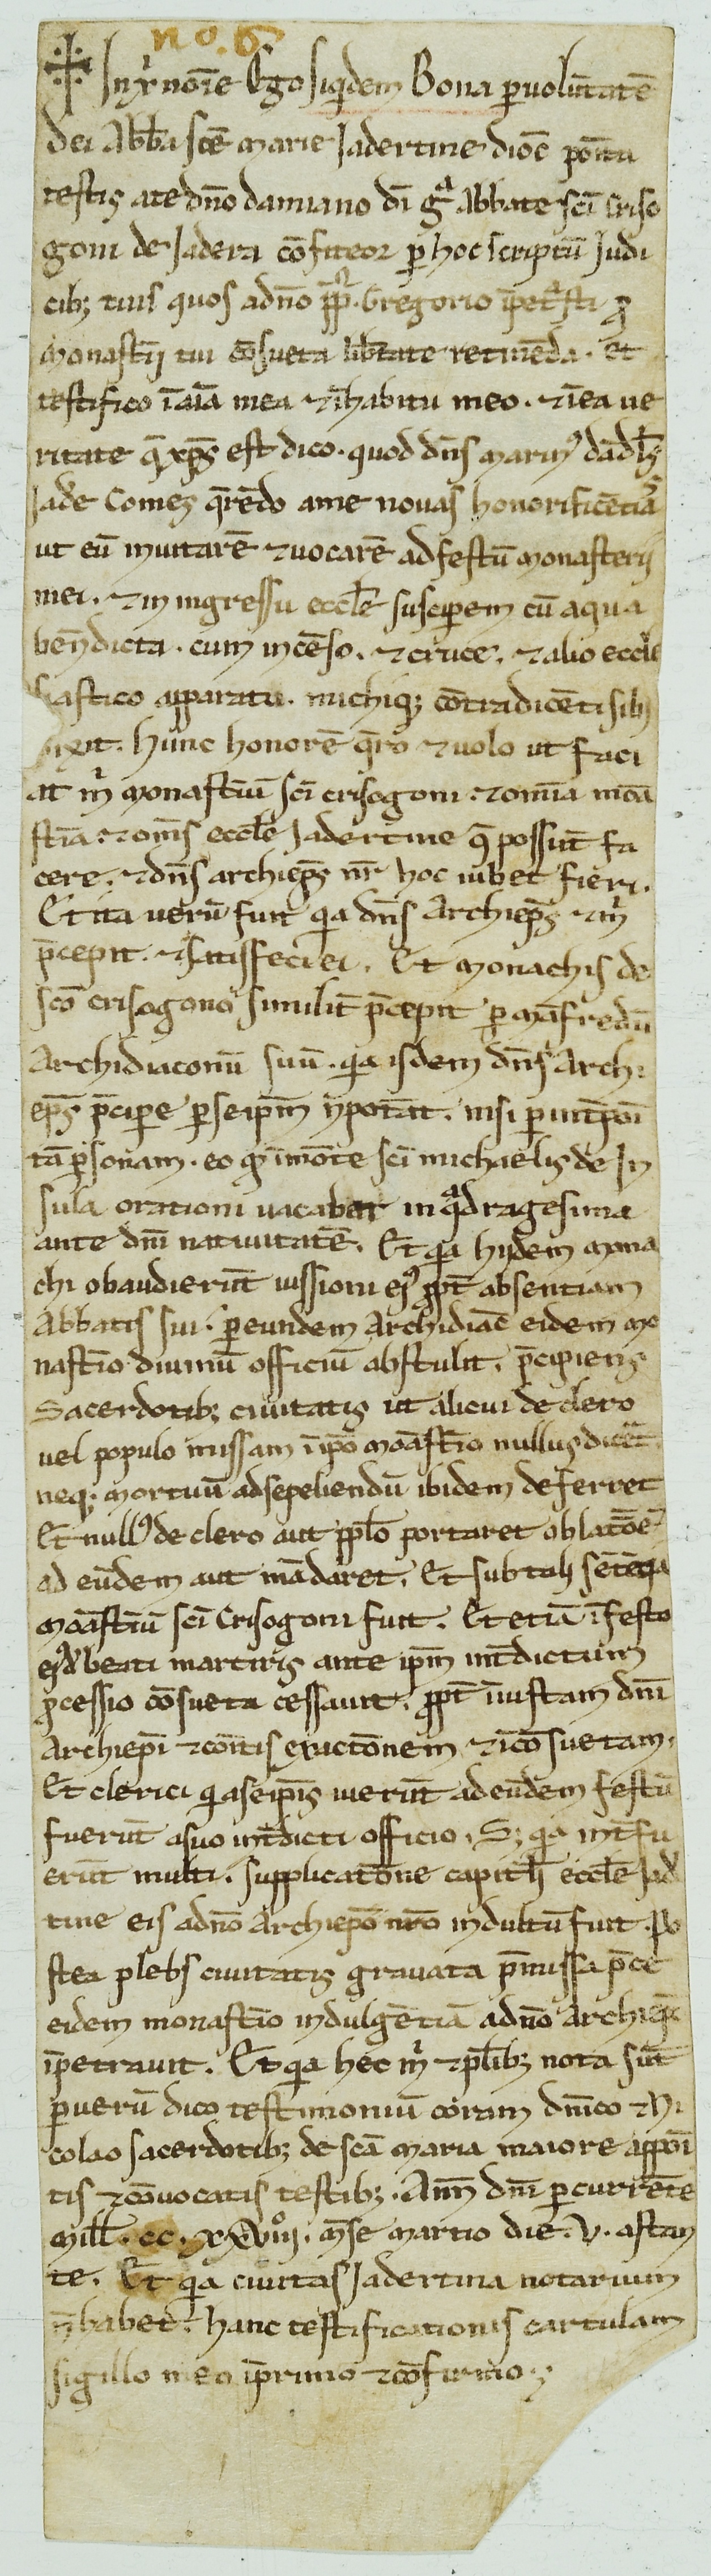 no. 6.
In xr̄i nōīe Ego siq̄dem Bona p uolūtatē
dei Abb̄a sc̄e marie Jadertine dioc̄ ponta
testis a te dn̄o damiano dī gr̄a Abbate sc̄i Criso
goni de Jadera cōfiteor p hoc scriptū Judi
cib; tuis quos a dn̄o pp̄ Gregorio īpetͣsti p
monast̄ij tui cōsueta lib̄tate retinēda. Et
testifico ī aīa mea ⁊ ī habitu meo. ⁊ ī ea ue
ritate q̄ xp̄s est dico. quod dn̄s marin⁹ dādl̄s
Jad̄e Comes q̄rēdo a me nouas honorificētias
ut eū inuitarē ⁊ uocarē ad festū monasterij
mei. ⁊ in ingressu eccl̄e susciperem cū aqua
bēndicta. cum incēso. ⁊ cruce. ⁊ alio eccl̄e
siastico apparatu. michiq; cōtradicēti sibi
dixit. Hunc honorē q̄ro ⁊ uolo ut faci
at m̄ monast̄iū sc̄i crisogoni ⁊ omīa mōa
st̄ia ⁊ om̄s eccl̄e Jadertine q̄ possūt fa
cere. ⁊ dn̄s archiep̄s nr̄ hoc iubet fieri.
Et ita uerū fuit q̄a dn̄s Archiep̄s ⁊ m̄
p̄cepit. ⁊ satisfeci ei. Et monachis de
sc̄o crisogono similit̄ p̄cepit p māfredū
Archidiaconū suū. q̄a isdem dn̄s Archi
ep̄s p̄cipe p seip̄m n̄ pot̄at. nisi p int̄poi
tā p̄sonam. eo q̄ ī mōte sc̄i michaelis de In
sula orationi uacabat in q̄dragesima
ante dn̄i natiuitatē. Et q̄a hijdem mona
chi obaudierūt iussioni ej⁹ ꝓpt̄ absentiam
Abbatis sui. p eundem Archidiac̄ eidem mo
nast̄io diuinū officiū abstulit. p̄cipiens
Sacerdotib; ciuitatis ut alicui de clero
uel populo missam ī ip̄o mōast̄io nullus dic̄et
neq; mortuū ad sepeliendū ibidem deferret
Et null⁹ de clero aut pp̄lo portaret oblatōē
ad eūdem aut mādaret. Et sub tali sētētia
mōast̄iū sc̄i Crisogoni fuit. Et etiā ī festo
ejd̄ beati martiris ante ip̄m int̄dictum
ꝓcessio cōsueta cessauit. ꝓpt̄ īiustam dn̄i
Archiep̄i ⁊ com̄tis exactōnem ⁊ īcōsuetam.
Et clerici q̄ a seip̄is iuerūt ad eūdem festū
fuerūt a suo int̄dicti officio. S; q̄a int̄fu
erūt multi. supplicatōne capit̄li eccl̄e Jad̄
tine eis a dn̄o Archiep̄o nr̄o indultū fuit. Po
stea plebs ciuitatis grauata p̄missa p̄ce
eidem monast̄io indulgētiā a dn̄o Archiep̄o
īpetrauit. Et q̄a hec m̄ ⁊ pl̄ib; nota sūt
p uerū dico testimoniū coram dm̄co ⁊ Ni
colao sacerdotib; de sc̄a maria maiore apponi
tis ⁊ cōuocatis testib;. Ann̄ dn̄i p currēte
mill̄. cc. xxviiiº. m̄se martio die. v. astan
te. Et q̄a ciuitas Jadertina notarium
n̄ habet. hanc testificationis cartulam
sigillo meo īprimo ⁊ cōfirmo.